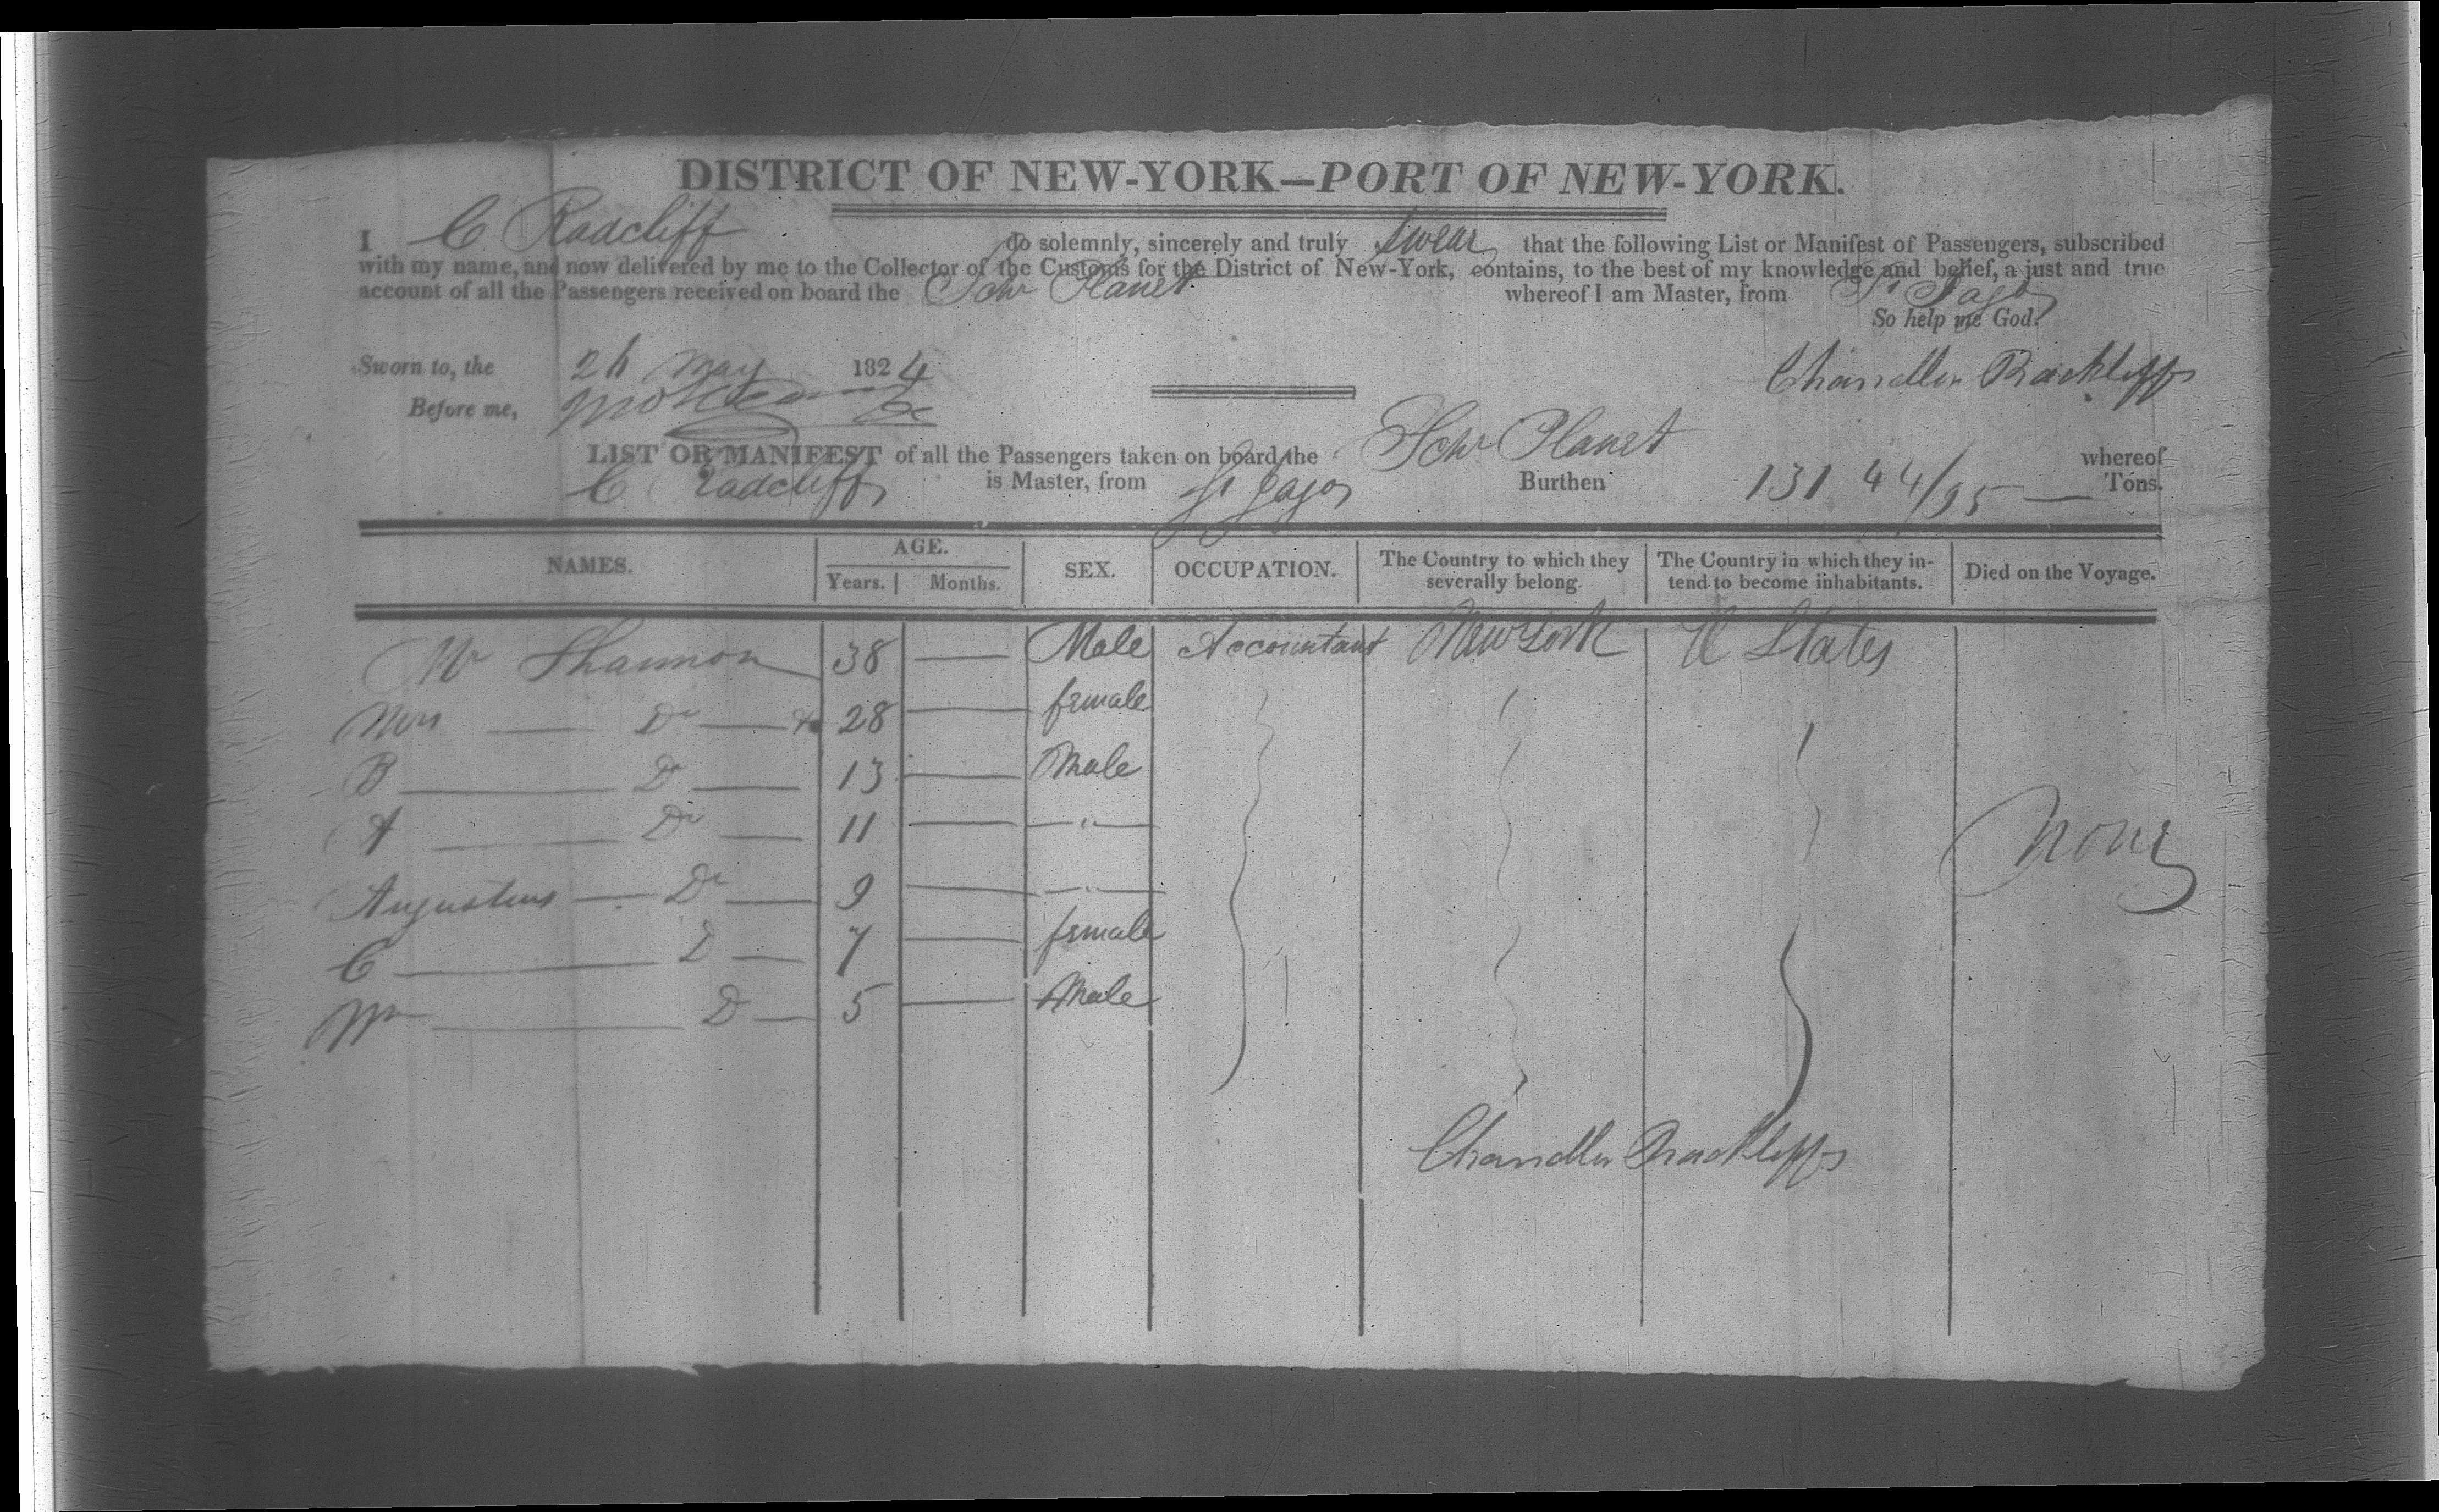 DISTRICT OF NEW-YORK—PORT OF NEW-YORK.
I C Radcliff do solemnly, sincerely and truly swear that the following List or Manifest of Passengers, subscribed
with my name, and now delivered by me to the Collector of the Customs for the District of New-York, contains, to the best of my knowledge and belief, a just and true
account of all the Passengers received on board the Schr Planet whereof I am Master, from St Jago
So help me God.
Sworn to, the 26 May 1824
Chandler Rackliff
Before me,
LIST OR MANIFEST of all the Passengers taken on board the Schr Planet whereof
C Radcliff is Master, from St Jago Burthen 131 44/95 — Tons.
NAMES. AGE. Years. Months. SEX. OCCUPATION. The Country to which they severally belong. The Country in which they intend to become inhabitants. Died on the Voyage.
Mr Shannon 38 — Male Accountant New York U States
Mrs — Do — 28 — female
B — Do — 13 — Male
A — Do — 11 — — " —
Augustus — Do — 9 — — " —
C — D — 7 — female
Wm — D — 5 — Male
None
Chandler Rackliff